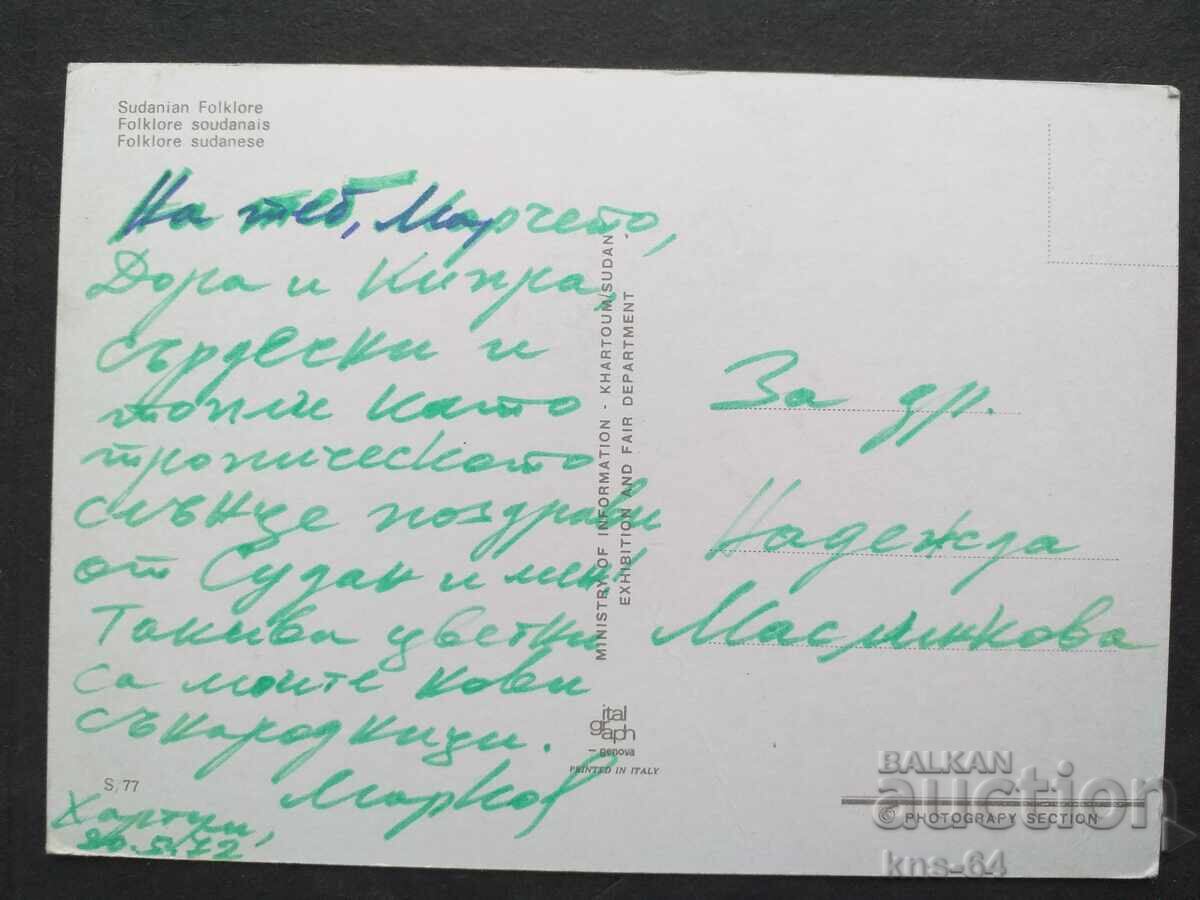 Sudanian Folklore
Folklore soudanais
Folklore sudanese
На теб, Марчето,
Дора и Кипра,
сърдечни и
топли като
тропическото
слънце поздрави
от Судан и мен!
Такива цветни
са моите нови
сънародници.
Марков
S, 77
Хартум,
20.5.72
MINISTRY OF INFORMATION - KHARTOUM/SUDAN
EXHIBITION AND FAIR DEPARTMENT
grital
raph
- genova
PRINTED IN ITALY
За др.
Надежда
Маслинкова
© PHOTOGRAPY SECTION
BALKAN
auction
kns-64